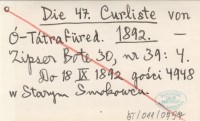 Die 47. Curliste von
Ó-Tátrafüred. 1892. –
Zipser Bote 30, nr 39: 4.
Do 18 IX 1892 gości 4948
w Starym Smokowcu.
b/011/0959